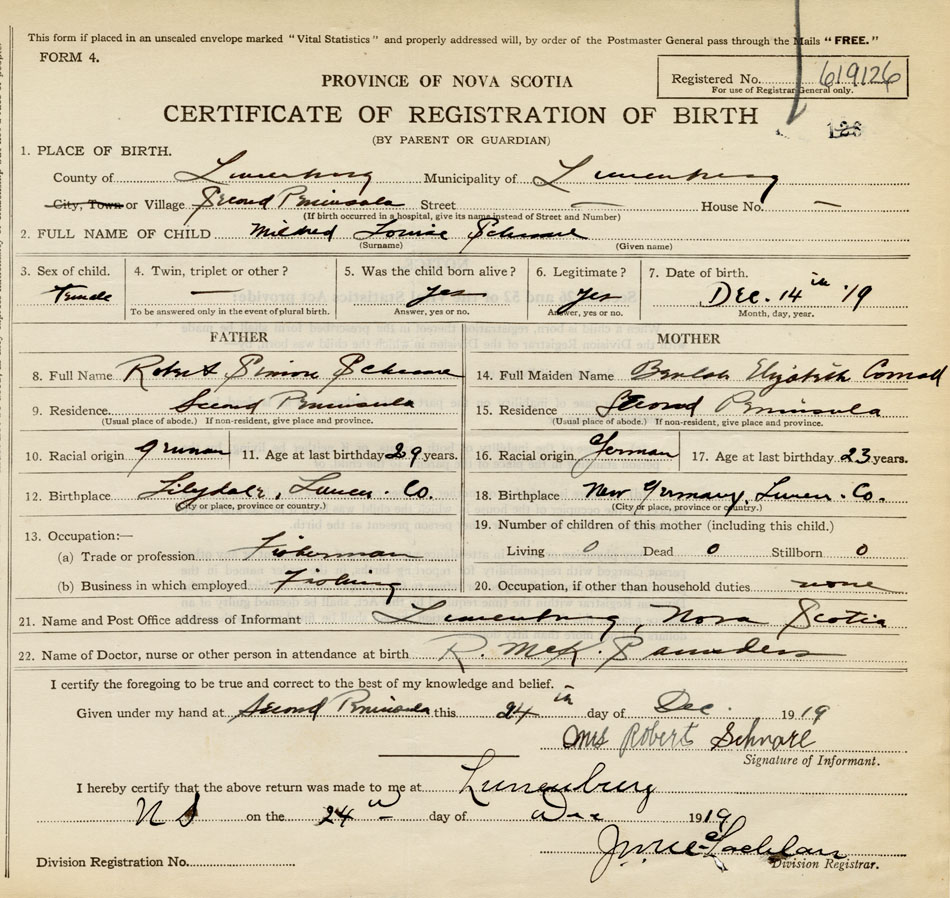 This form if placed in an unsealed envelope marked "Vital Statistics" and properly addressed will, by order of the Postmaster General pass through the Mails "FREE."
FORM 4.
PROVINCE OF NOVA SCOTIA
Registered No. 619126
For use of Registrar General only.
CERTIFICATE OF REGISTRATION OF BIRTH
126
(BY PARENT OR GUARDIAN)
1. PLACE OF BIRTH.
County of Lunenburg Municipality of Lunenburg
City, Town or Village Second Peninsula Street — House No. —
(If birth occurred in a hospital, give its name instead of Street and Number)
2. FULL NAME OF CHILD Mildred Louise Schnare
(Surname) (Given name)
3. Sex of child. 4. Twin, triplet or other? 5. Was the child born alive? 6. Legitimate? 7. Date of birth.
Female — Yes Yes Dec. 14th '19
To be answered only in the event of plural birth. Answer, yes or no. Answer, yes or no. Month, day, year.
FATHER MOTHER
8. Full Name Robert Simon Schnare 14. Full Maiden Name Beulah Elizabeth Conrad
9. Residence Second Peninsula 15. Residence Second Peninsula
(Usual place of abode.) If non-resident, give place and province. (Usual place of abode.) If non-resident, give place and province.
10. Racial origin German 11. Age at last birthday 29 years. 16. Racial origin German 17. Age at last birthday 23 years.
12. Birthplace Lilydale, Lunen. Co. 18. Birthplace New Germany, Lunen. Co.
(City or place, province or country.) (City or place, province or country.)
13. Occupation:— 19. Number of children of this mother (including this child.)
(a) Trade or profession Fisherman Living 0 Dead 0 Stillborn 0
(b) Business in which employed Fishing 20. Occupation, if other than household duties none
21. Name and Post Office address of Informant Lunenburg, Nova Scotia
22. Name of Doctor, nurse or other person in attendance at birth R. McK. Saunders
I certify the foregoing to be true and correct to the best of my knowledge and belief.
Given under my hand at Second Peninsula this 24th day of Dec. 1919
Mrs Robert Schnare
Signature of Informant.
I hereby certify that the above return was made to me at Lunenburg
N S on the 24 day of Dec 1919
Division Registration No. Division Registrar.